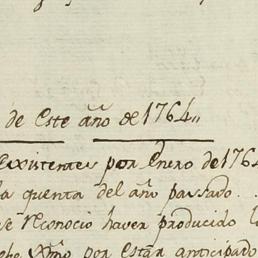 de Este año de 1764„
Existentes por Enero de 1764
la quenta del año passado
se reconocio haver producido
por estar anticipado